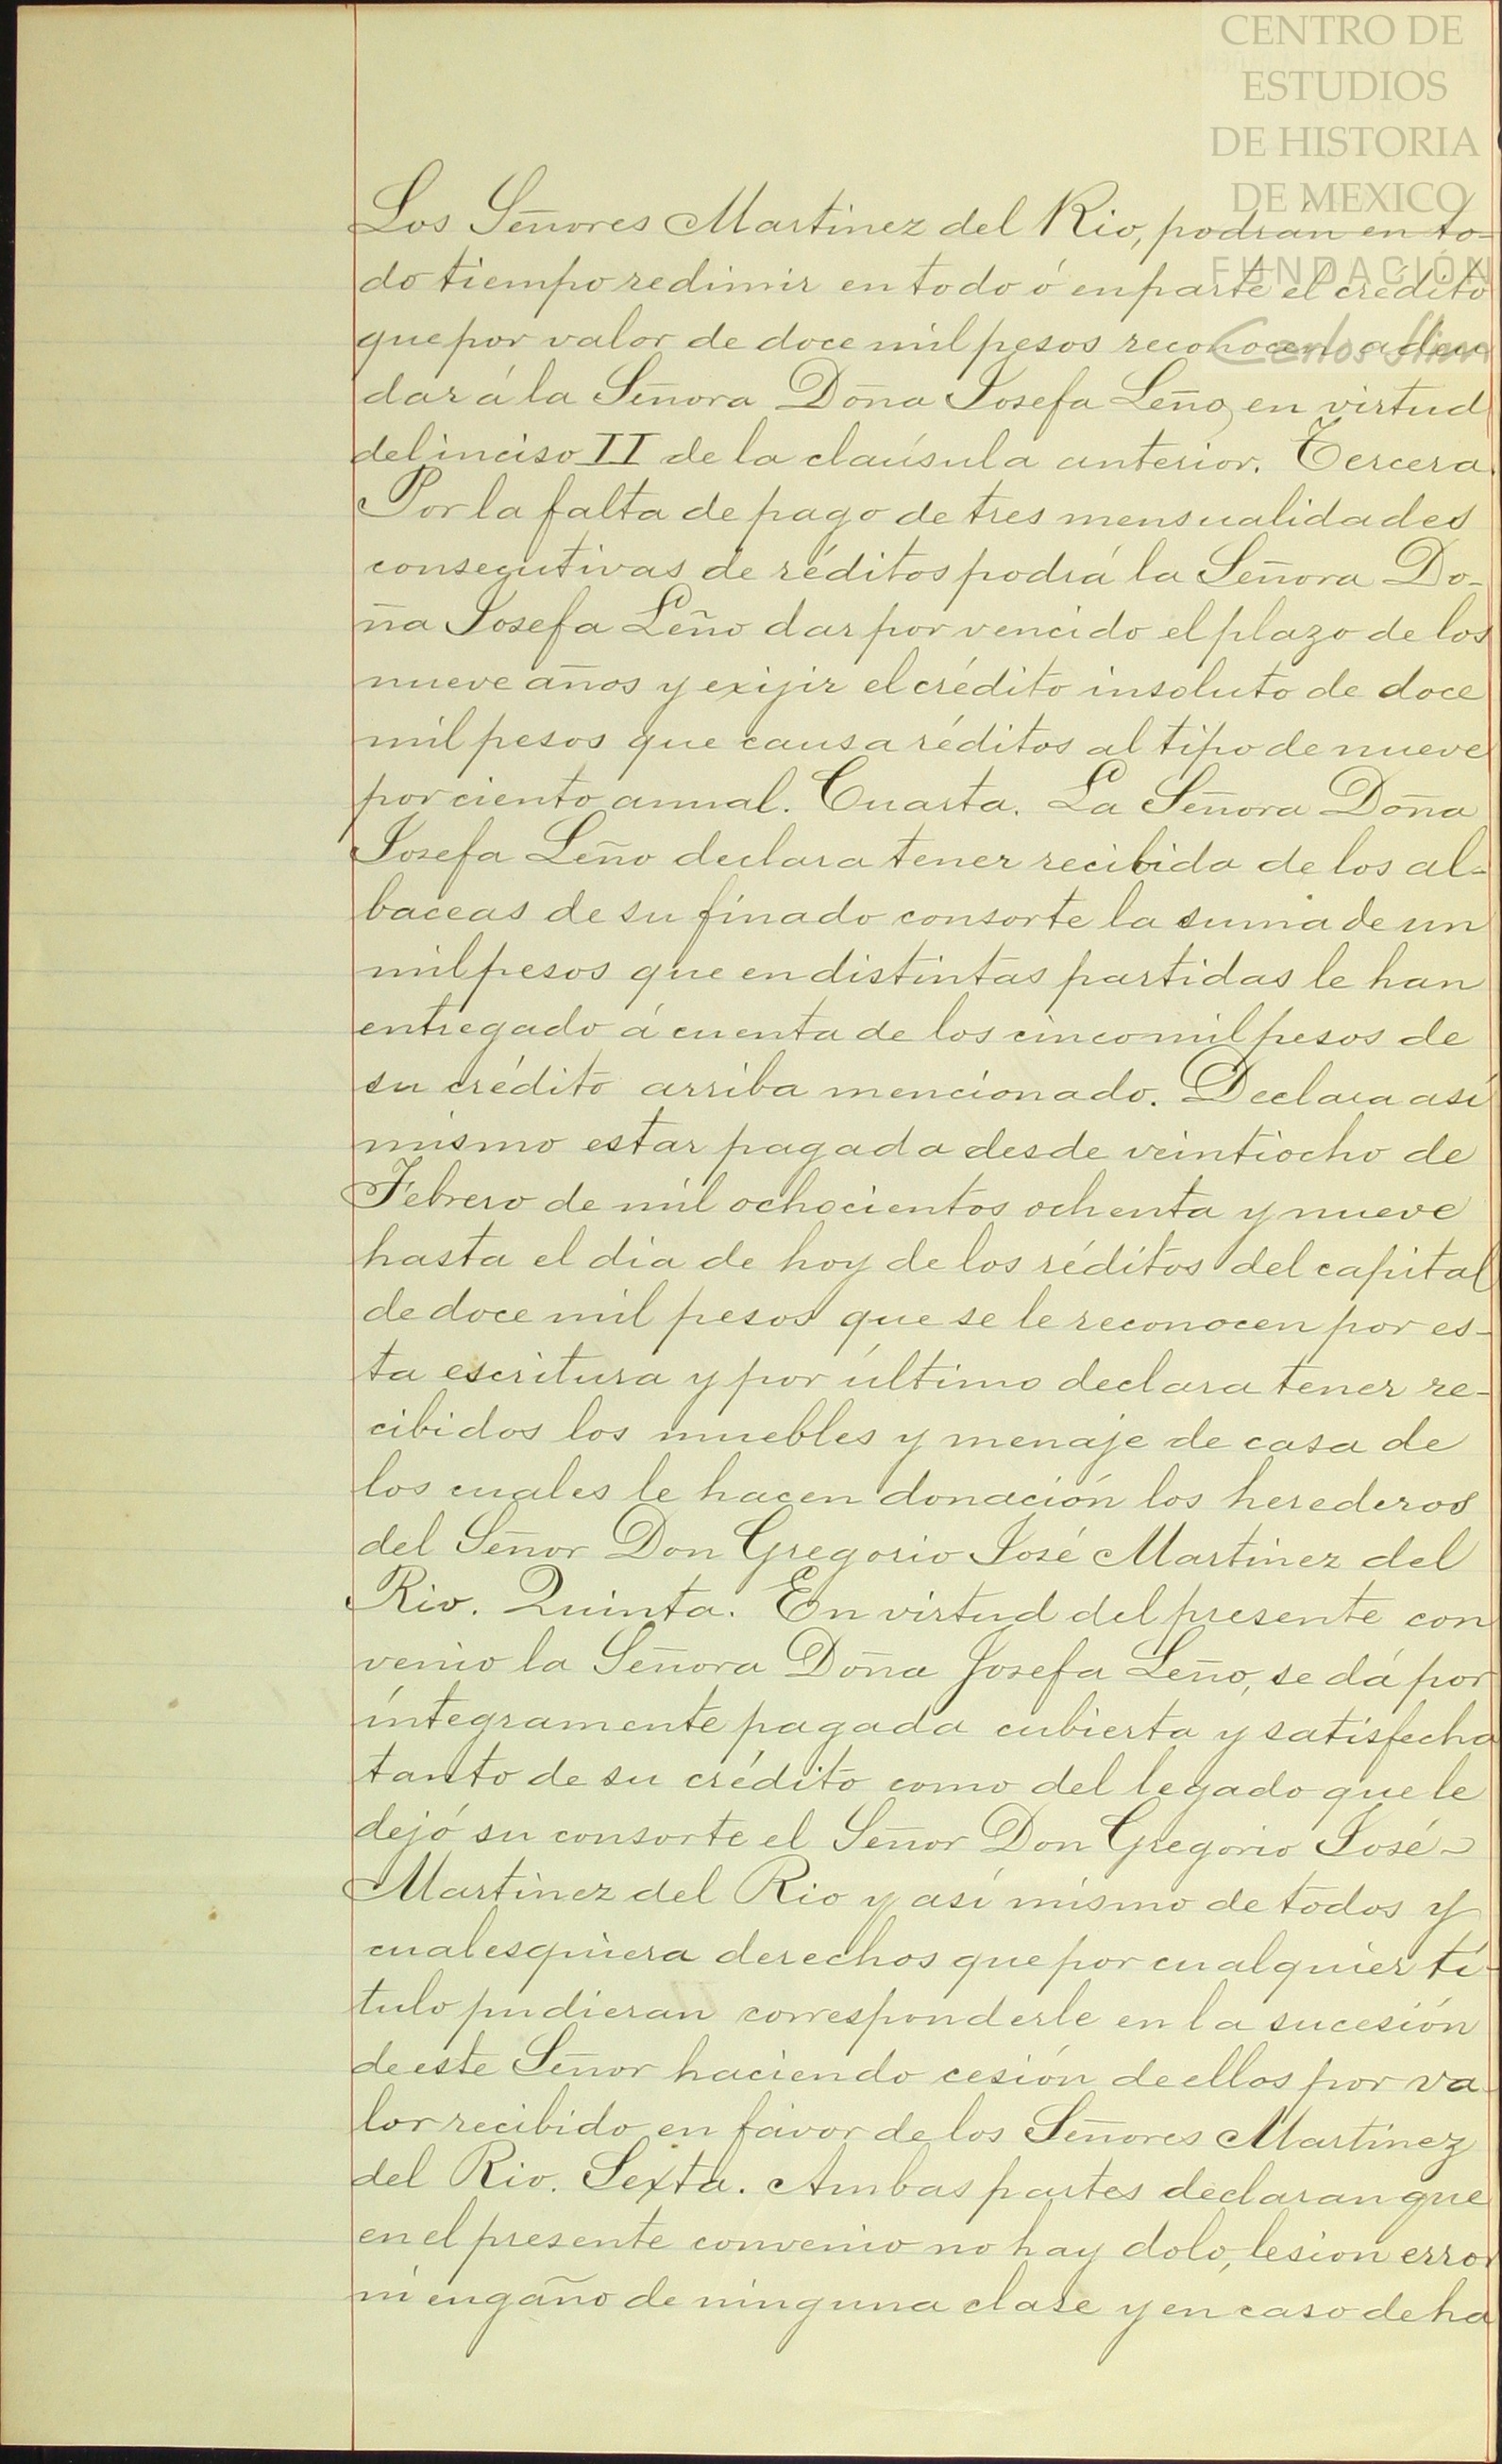 CENTRO DE
ESTUDIOS
DE HISTORIA
DE MEXICO
FUNDACIÓN
Carlos Slim
Los Señores Martinez del Rio, podrán en to-
do tiempo redimir en todo ó en parte el crédito
que por valor de doce mil pesos reconocen adeu
dar á la Señora Doña Josefa Leño, en virtud
del inciso II de la claúsula anterior. Tercera.
Por la falta de pago de tres mensualidades
consecutivas de réditos podrá la Señora Do-
ña Josefa Leño dar por vencido el plazo de los
nueve años y exijir el crédito insoluto de doce
mil pesos que causa réditos al tipo de nueve
por ciento annal. Cuarta. La Señora Doña
Josefa Leño declara tener recibida de los al-
baceas de su finado consorte la suma de un
mil pesos que en distintas partidas le han
entregado á cuenta de los cinco mil pesos de
su crédito arriba mencionado. Declara así
mismo estar pagada desde veintiocho de
Febrero de mil ochocientos ochenta y nueve
hasta el dia de hoy de los réditos del capital
de doce mil pesos que se le reconocen por es-
ta escritura y por último declara tener re-
cibidos los muebles y menaje de casa de
los cuales le hacen donación los herederos
del Señor Don Gregorio José Martinez del
Rio. Quinta. En virtud del presente con
venio la Señora Doña Josefa Leño, se dá por
íntegramente pagada cubierta y satisfecha
tanto de su crédito como del legado que le
dejó su consorte el Señor Don Gregorio José-
Martinez del Rio y así mismo de todos y
cualesquiera derechos que por cualquier tí-
tulo pudieran corresponderle en la sucesión
de este Señor haciendo cesión de ellos por va-
lor recibido en favor de los Señores Martinez
del Rio. Sexta. Ambas partes declaran que
en el presente convenio no hay dolo, lesion error
ni engaño de ninguna clase y en caso de ha